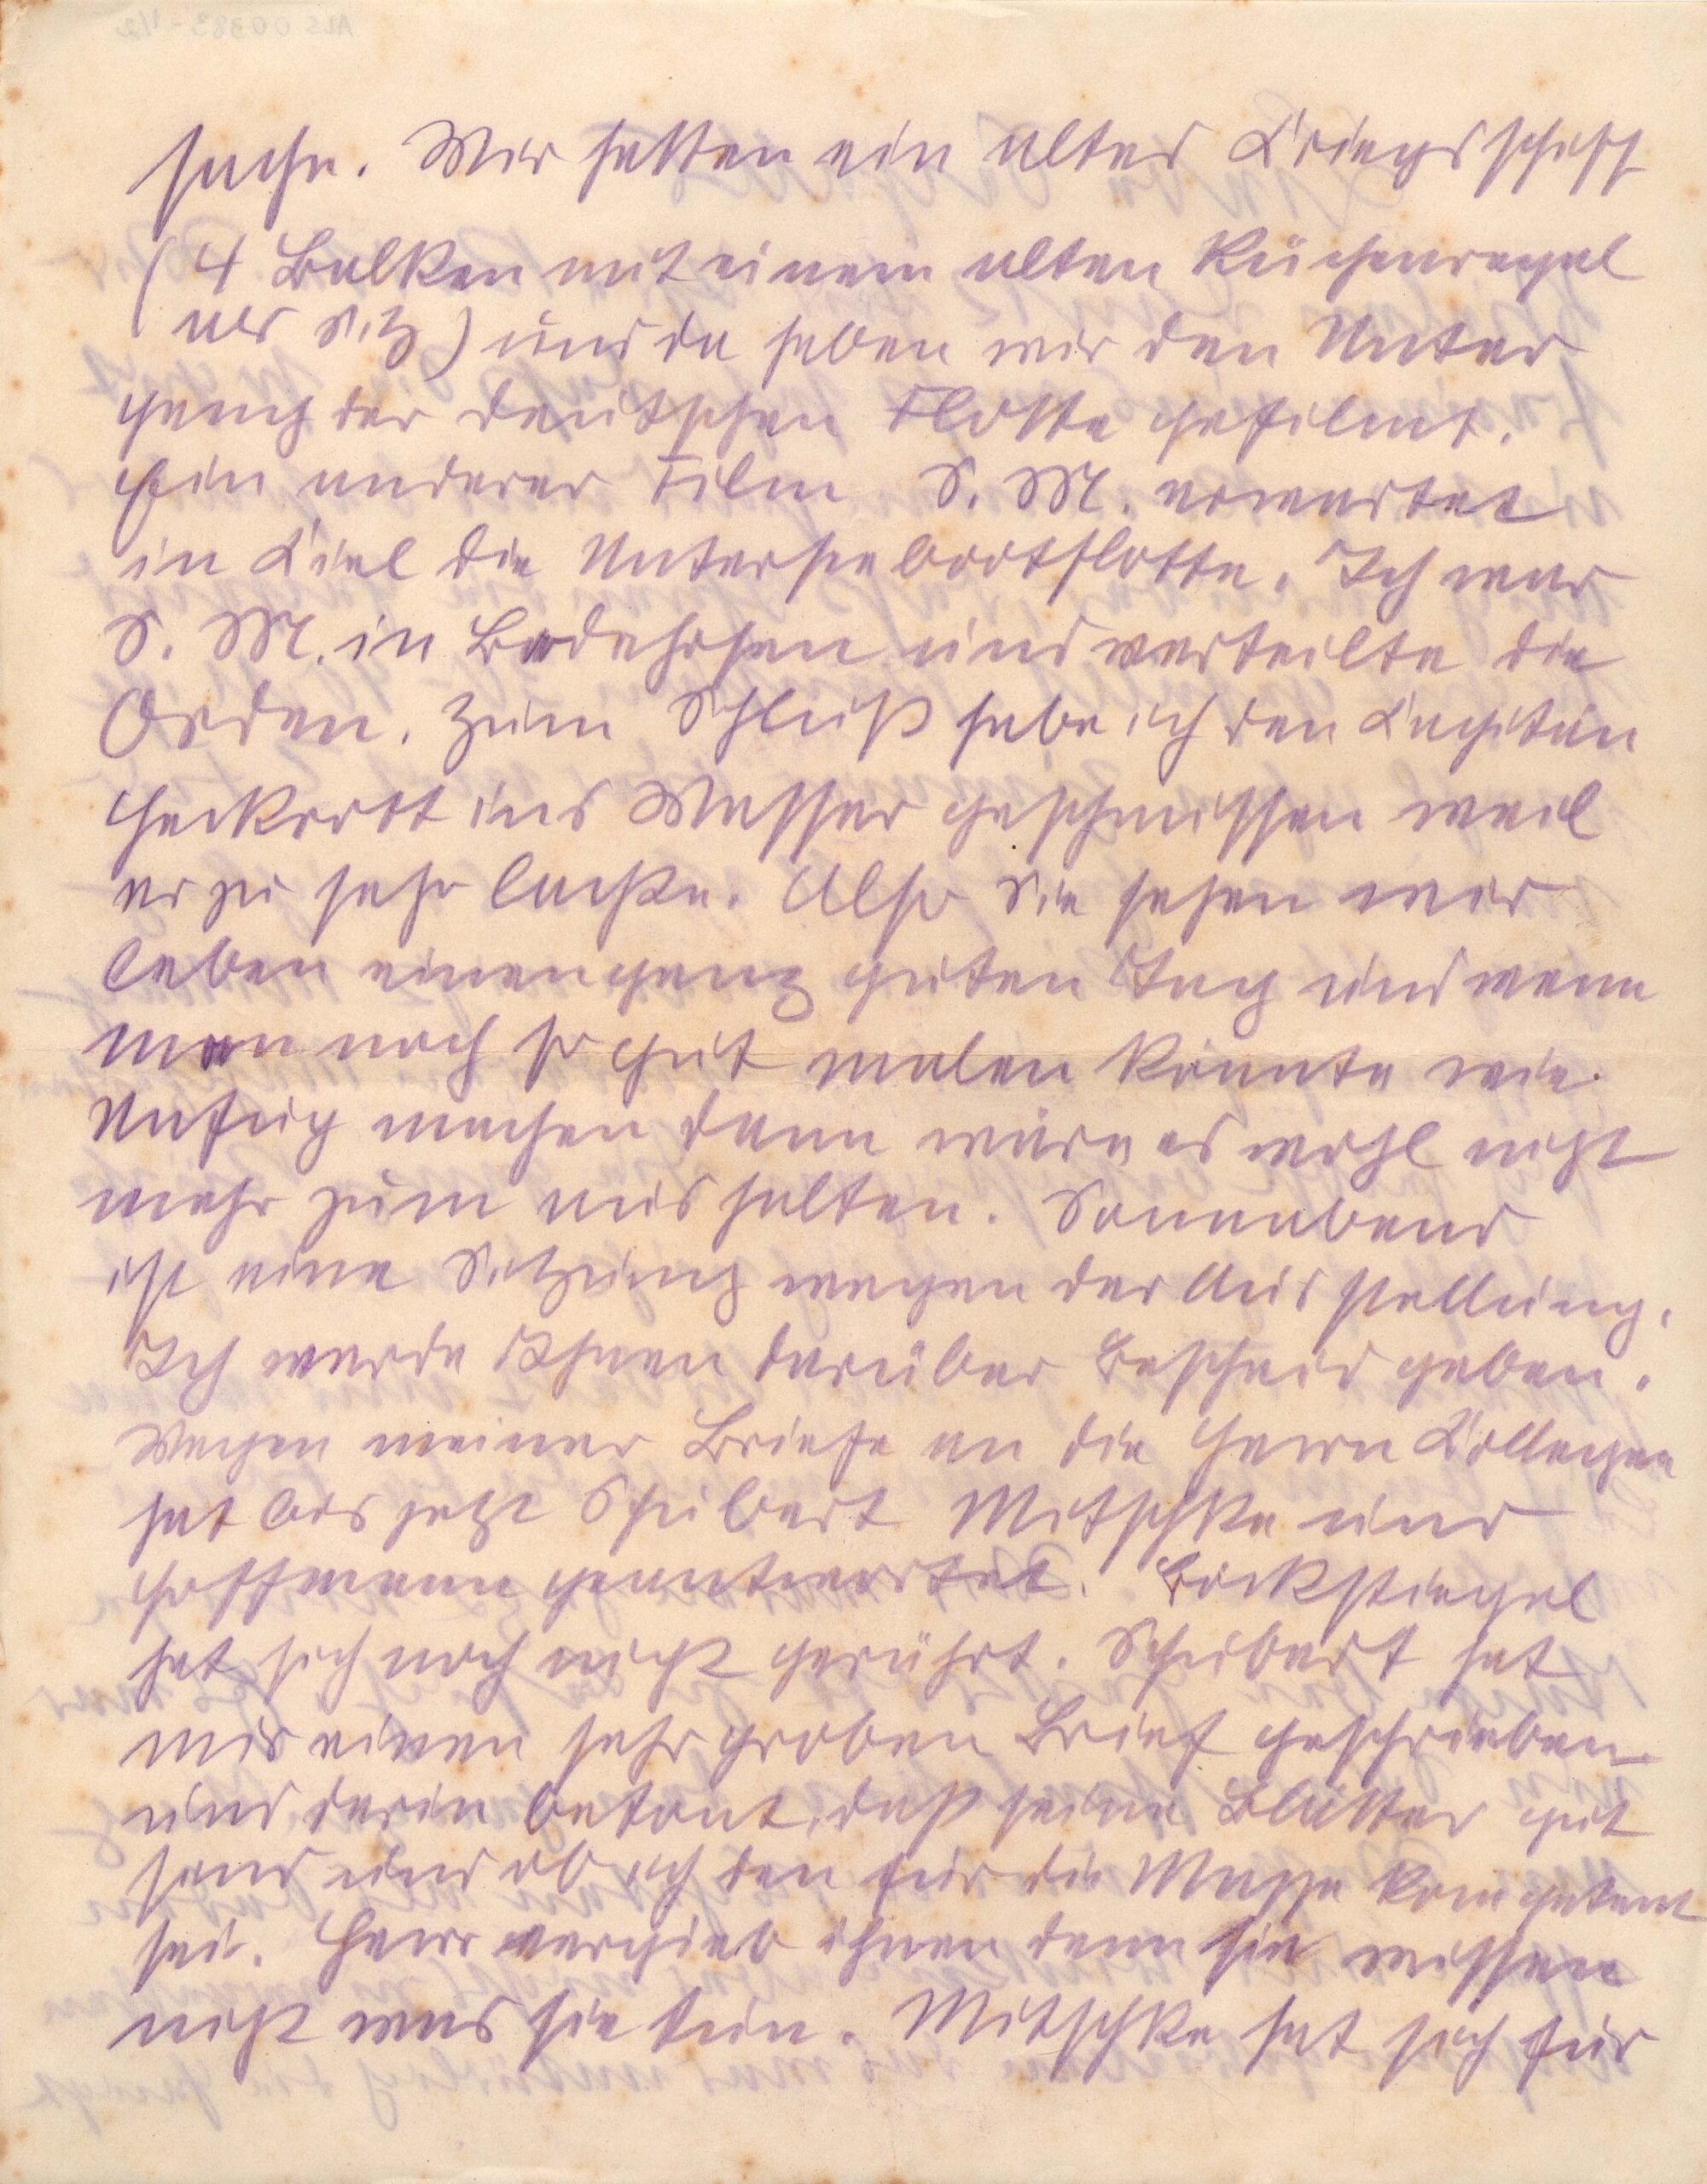 sache. Wir hatten ein altes Kriegsschiff
(4 Balken mit einem alten Küchenregal
als Sitz) und da haben wir den Unter
gang der deutschen Flotte gefilmt.
Ein anderer Film S. M. erwartet
in Kiel die Unterseebootflotte. Ich war
S. M. in Badehosen und verteilte die
Orden. Zum Schluß habe ich den Kapitän
Heckrott ins Wasser geschmissen weil
er zu sehr lachte. Also Sie sehen wir
leben einen ganz guten Tag und wenn
man noch so gut malen könnte wie
Unfug machen dann wäre es wohl nicht
mehr zum aushalten. Sonnabend
ist eine Sitzung wegen der Ausstellung.
Ich werde Ihnen darüber Bescheid geben.
Wegen meiner Briefe an die Herrn Kollegen
hat bis jetzt Schubert Mitschke und
Hoffmann geantwortet. Böckstiegel
hat sich noch nicht gerührt. Schubert hat
mir einen sehr groben Brief geschrieben
und darin betont, daß seine Blätter gut
sind und ob ich den für die Mappe kompetent
sei. Herr vergieb ihnen denn sie wissen
nicht was sie tun. Mitschke hat sich für